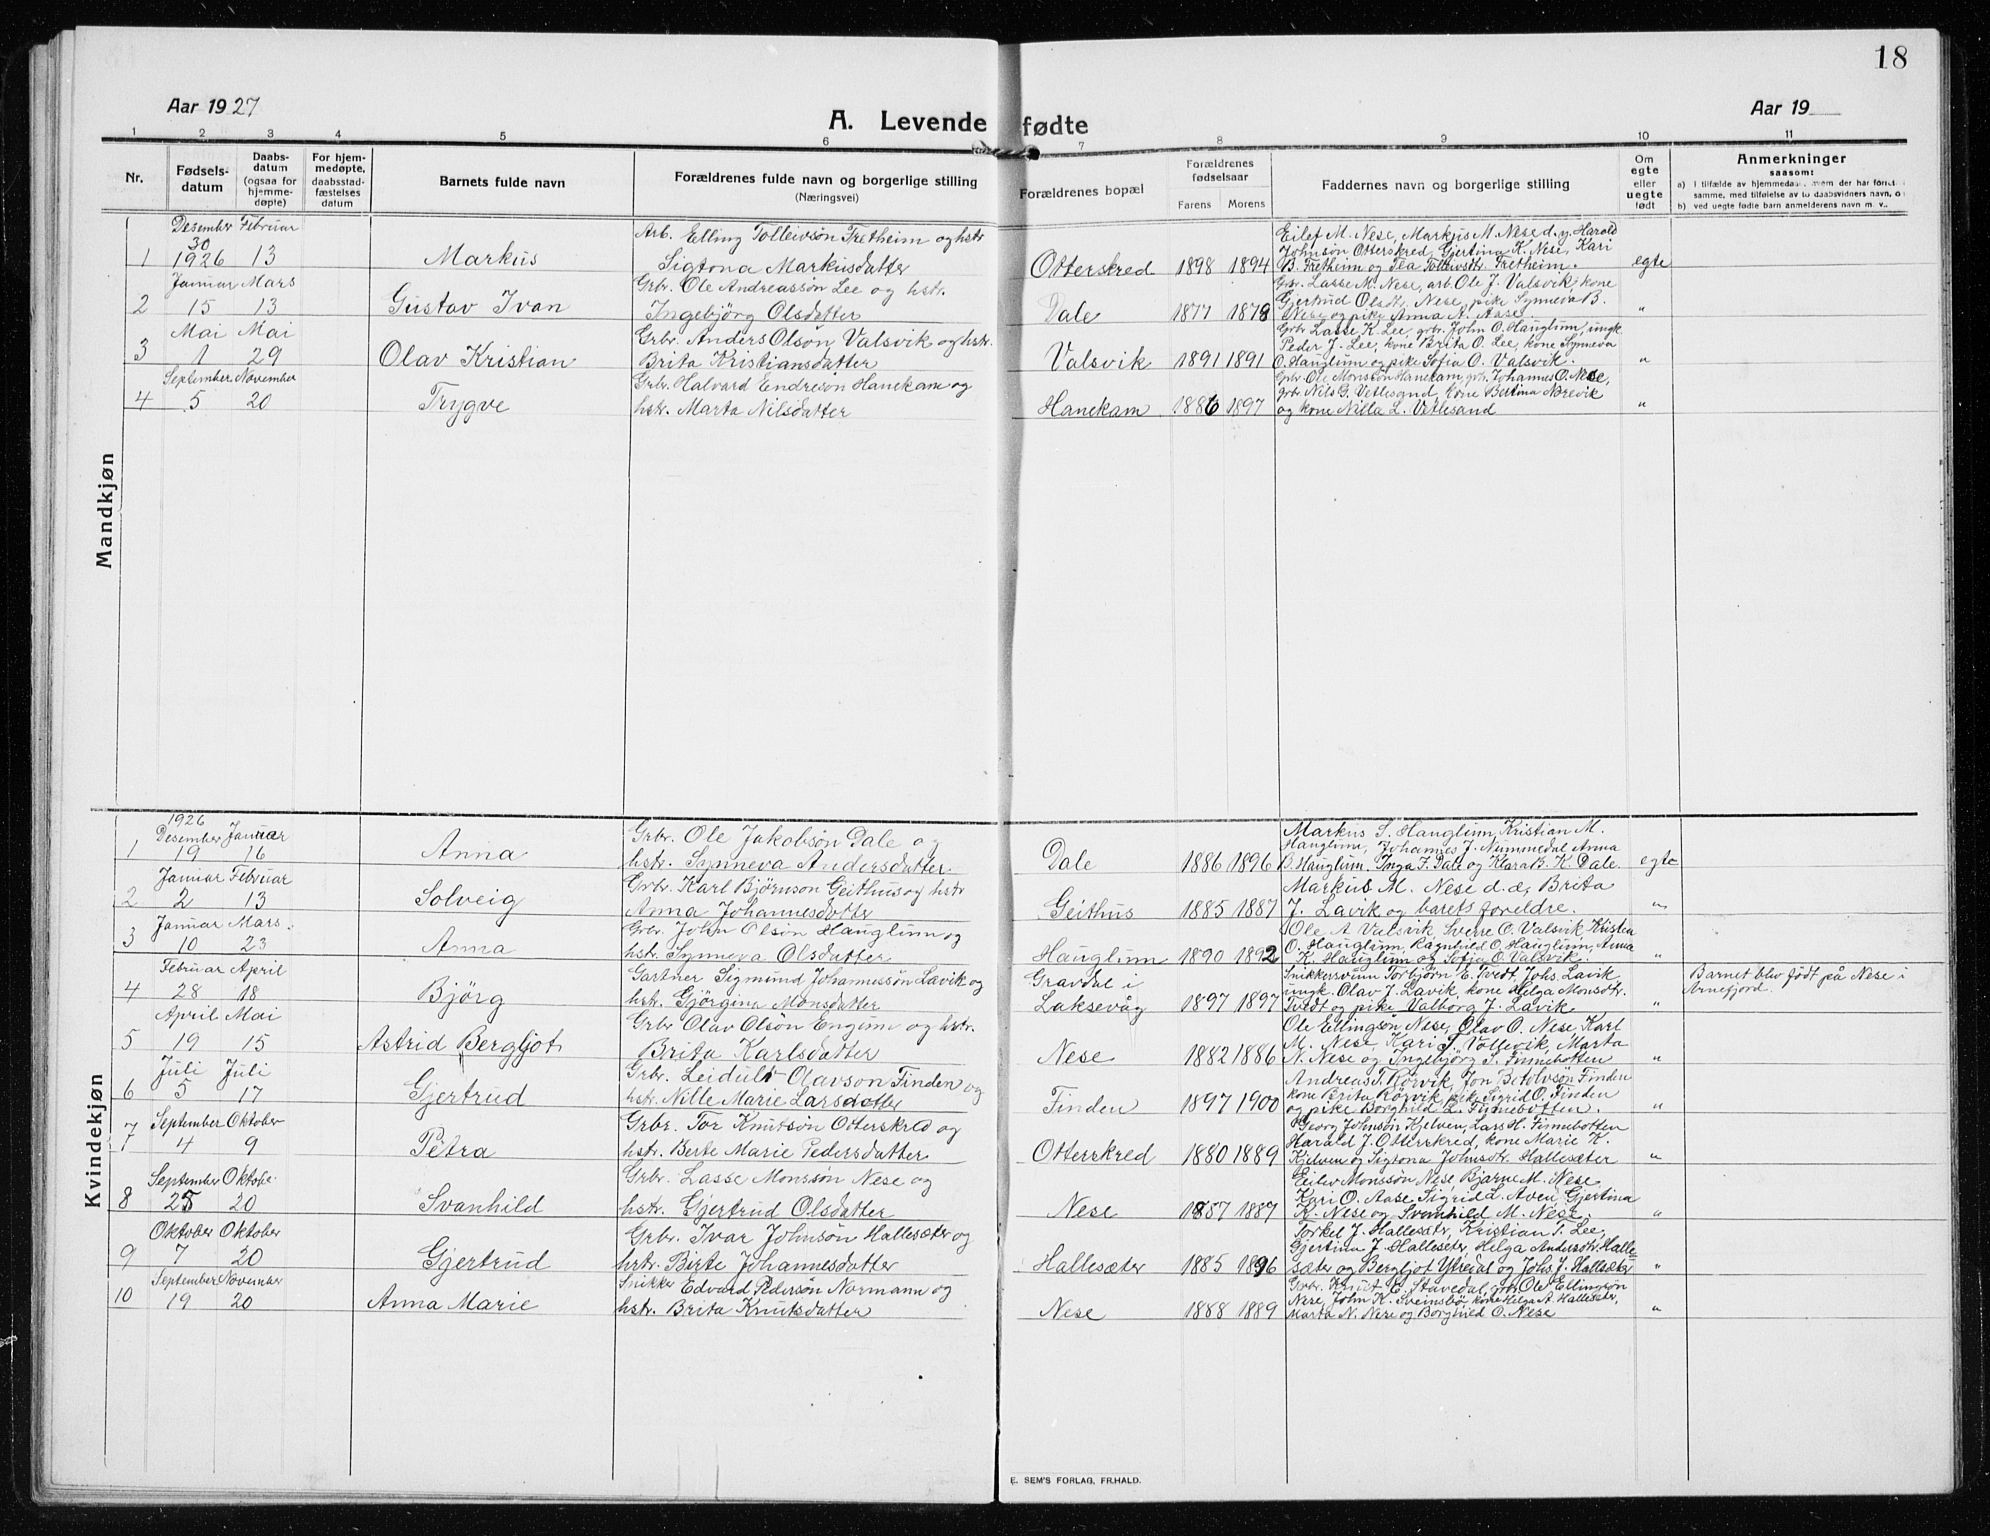 18
Aar 1927
Aar 19
A. Levende fødte
1 2 3 4 5 6 7 8 9 10 11
Nr.
Fødsels-
datum
Daabs-
datum
(ogsaa for
hjemme-
døpte)
For hjem-
medøpte,
daabsstad-
fæstelses
datum
Barnets fulde navn
Forældrenes fulde navn og borgerlige stilling
(Næringsvei)
Forældrenes bopæl
Forældrenes
fødselsaar
Farens Morens
Faddernes navn og borgerlige stilling
Om
egte
eller
uegte
født
Anmerkninger
saasom:
Mandkjøn
Desember Februar
30
1 1926 13 Markus
Arb. Elling Tolleivsön Fretheim og hstr
Sigtona Markusdatter
Otterskred 1898 1894
Eilef M. Nese, Markus M. Nese d.y. Harald
Johnsön Otterskred, Gjertina K. Nese, Kari
B. Fretheim og Tolleivsdtr. Fretheim.
egte
Januar Mars
2 15 13 Gustav Ivan
Grbr. Ole Andreassön Lee og hstr.
Ingebjörg Olsdatter
Dale 1877 1878
Grbr. Lasse M. Nese, arb. Ole J. Valsvik, kone
Gjertrud Olsdtr. Nese, pike Synneva B.
Nese og pike Anna A. Aase.
"
Mai Mai
3 1 29 Olav Kristian
Grbr. Anders Olsön Valsvik og hstr.
Brita Kristiansdatter
Valsvik 1891 1891
Grbr Lasse K. Lee, grbr. John O. Hauglum, ungk
Peder J. Lee, kone Brita O. Lee, kone Synneva
O. Hauglum og pike Sofia O. Valsvik.
"
September November
4 5 20 Trygve
Grbr. Halvard Endresön Hanekam og
hstr. Marta Nilsdatter
Hanekam 1886 1897
Grbr. Ole Monsön Hanekam, grb. Johannes O. Nese,
grbr. Nils G. Vetlesand, kone Bertina Nörevik
og kone Nilla L. Vetlesand
"
Kvindekjøn
1926
Desember Januar
1 19 16 Anna
Grbr. Ole Jakobsön Dale og
hstr. Synneva Andersdatter
Dale 1886 1896
Markus S. Hauglum, Kristian M.
Hauglum, Johannes J. Nummedal Anna
B. Hauglum, Inga F. Dale og Klara B. K. Dale.
egte
Januar Februar
2 2 13 Solveig
Grbr. Karl Björnson Geithus og hstr
Anna Johannesdatter
Geithus 1885 1887
Markus M. Nese d.e, Brita
J. Lavik og barets foreldre.
"
Januar Mars.
3 10 23 Anna
Grbr. John Olsön Hauglum og
hstr. Synneva Olsdatter
Hauglum 1890 1892
Ole A. Valsvik, Sverre O. Valsvik Kristen
O. Hauglum, Ragnhild O. Hauglum, Anna
K. Hauglum og Sofia O. Valsvik.
"
Februar April
4 28 18 Björg
Gartner Sigmund Johannessön Lavik og
hstr. Gjörgina Monsdatter
Gravdal i
Laksevåg 1897 1897
Snikkersvenn Torbjörn E. Tvedt, Johs. Lavik
ungk. Olav J. Lavik, kone Helga Monsdtr.
Tvedt og pike Valborg J. Lavik
"
Barnet blev født på Nese i
Arnefjord.
April Mai
5 19 15 Astrid Bergljot
Grbr Olav Olsön Engum og hstr.
Brita Karlsdatter
Nese 1882 1886
Ole Ellingsön Nese, Olav O. Nese, Karl
M. Nese, Kari S. Vollevik, Marta
N. Nese og Ingebjörg S. Finnebotten
"
Juli Juli
6 5 17 Gjertrud
Grbr. Leidulv Olavson Finden og
hstr. Nille Marie Larsdatter
Finden 1897 1900
Andreas T. Rörvik, Jon Botolvsön Finden
kone Brita Rörvik, pike Sigrid O. Finden
og pike Borghild L. Finnebotten.
"
September Oktober
7 4 9 Petra
Grbr. Tor Knutsön Otterskred og
hstr. Berte Marie Pedersdatter
Otterskred 1880 1889
Georg Johnsön Kjelven, Lars H. Finnebotten
Harald J. Otterskred, kone Marie K.
Kjelven og Sigtona Johnsdtr. Hallesæter
"
September Oktobe.
8 25 20 Svanhild
Grbr. Lasse Monsön Nese og
hstr. Gjertrud Olsdatter
Nese 1887 1889
Eilev Monssön Nese, Bjarne M. Nese
Kari O. Aase, Sigrid L. Aven, Gjertina
K. Nese og Svanhild M. Nese.
"
Oktober Oktober
9 7 20 Gjertrud
Grbr. Ivar Johnsön Hallesæter og
hstr. Birte Johannesdatter
Hallesæter 1885 1896
Torkel J. Hallesætr, Kristian T. Lee,
Gjertina J. Halleseter, Helga Andersdtr. Halle=
sæter og Bergljot Ytredal og Johs. J. Hallesæter
"
September November
10 19 20 Anna Marie
Snikker Edvard Pedersön Normann og
hstr. Brita Knutsdatter
Nese 1888 1889
Grbr. Knut E. Stavedal, grbr. Ole Ellingsön
Nese, John K. Sveinsbö, kone Helga A. Hallesæter,
Marta N. Nese og Borghild O. Nese
"
E. SEM'S FORLAG, FR.HALD.